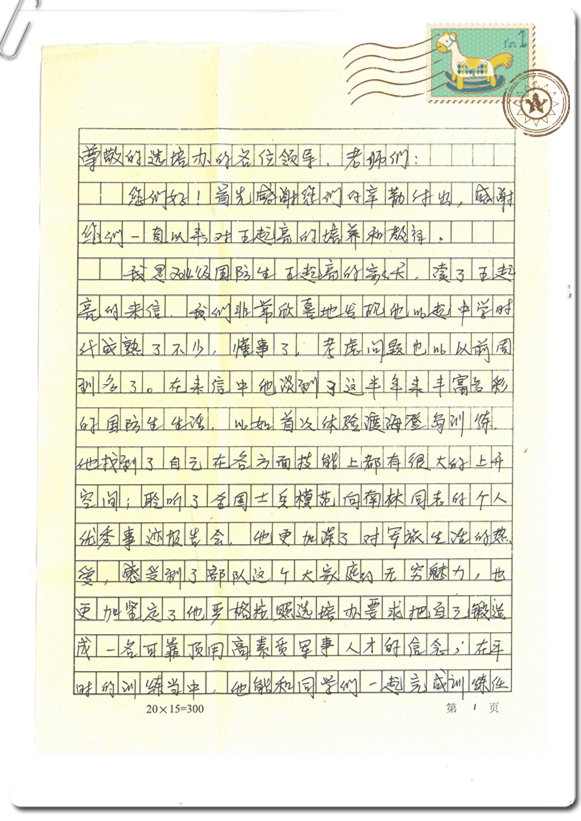 尊敬的选培办的各位领导、老师们：
您们好！首先感谢您们的辛勤付出，感谢
您们一直以来对王起亮的培养和教导。
我是 级国防生王起亮的家长，读了王起
亮的来信，我们非常欣喜地发现他比起中学时
代成熟了不少，懂事了，考虑问题也比以前周
到多了。在来信中他谈到了这半年来丰富多彩
的国防生生活，比如首次体验渡海登岛训练，
他找到了自己在各方面技能上都有很大的上升
空间；聆听了全国士兵模范向南林同志的个人
优秀事迹报告会，他更加深了对军旅生活的热
爱，感受到了部队这个大家庭的无穷魅力，也
更加坚定了他严格按照选培办要求把自己锻造
成一名可靠顶用高素质军事人才的信念；在平
时的训练当中，他能和同学们一起完成训练任
20×15=300
第 1 页